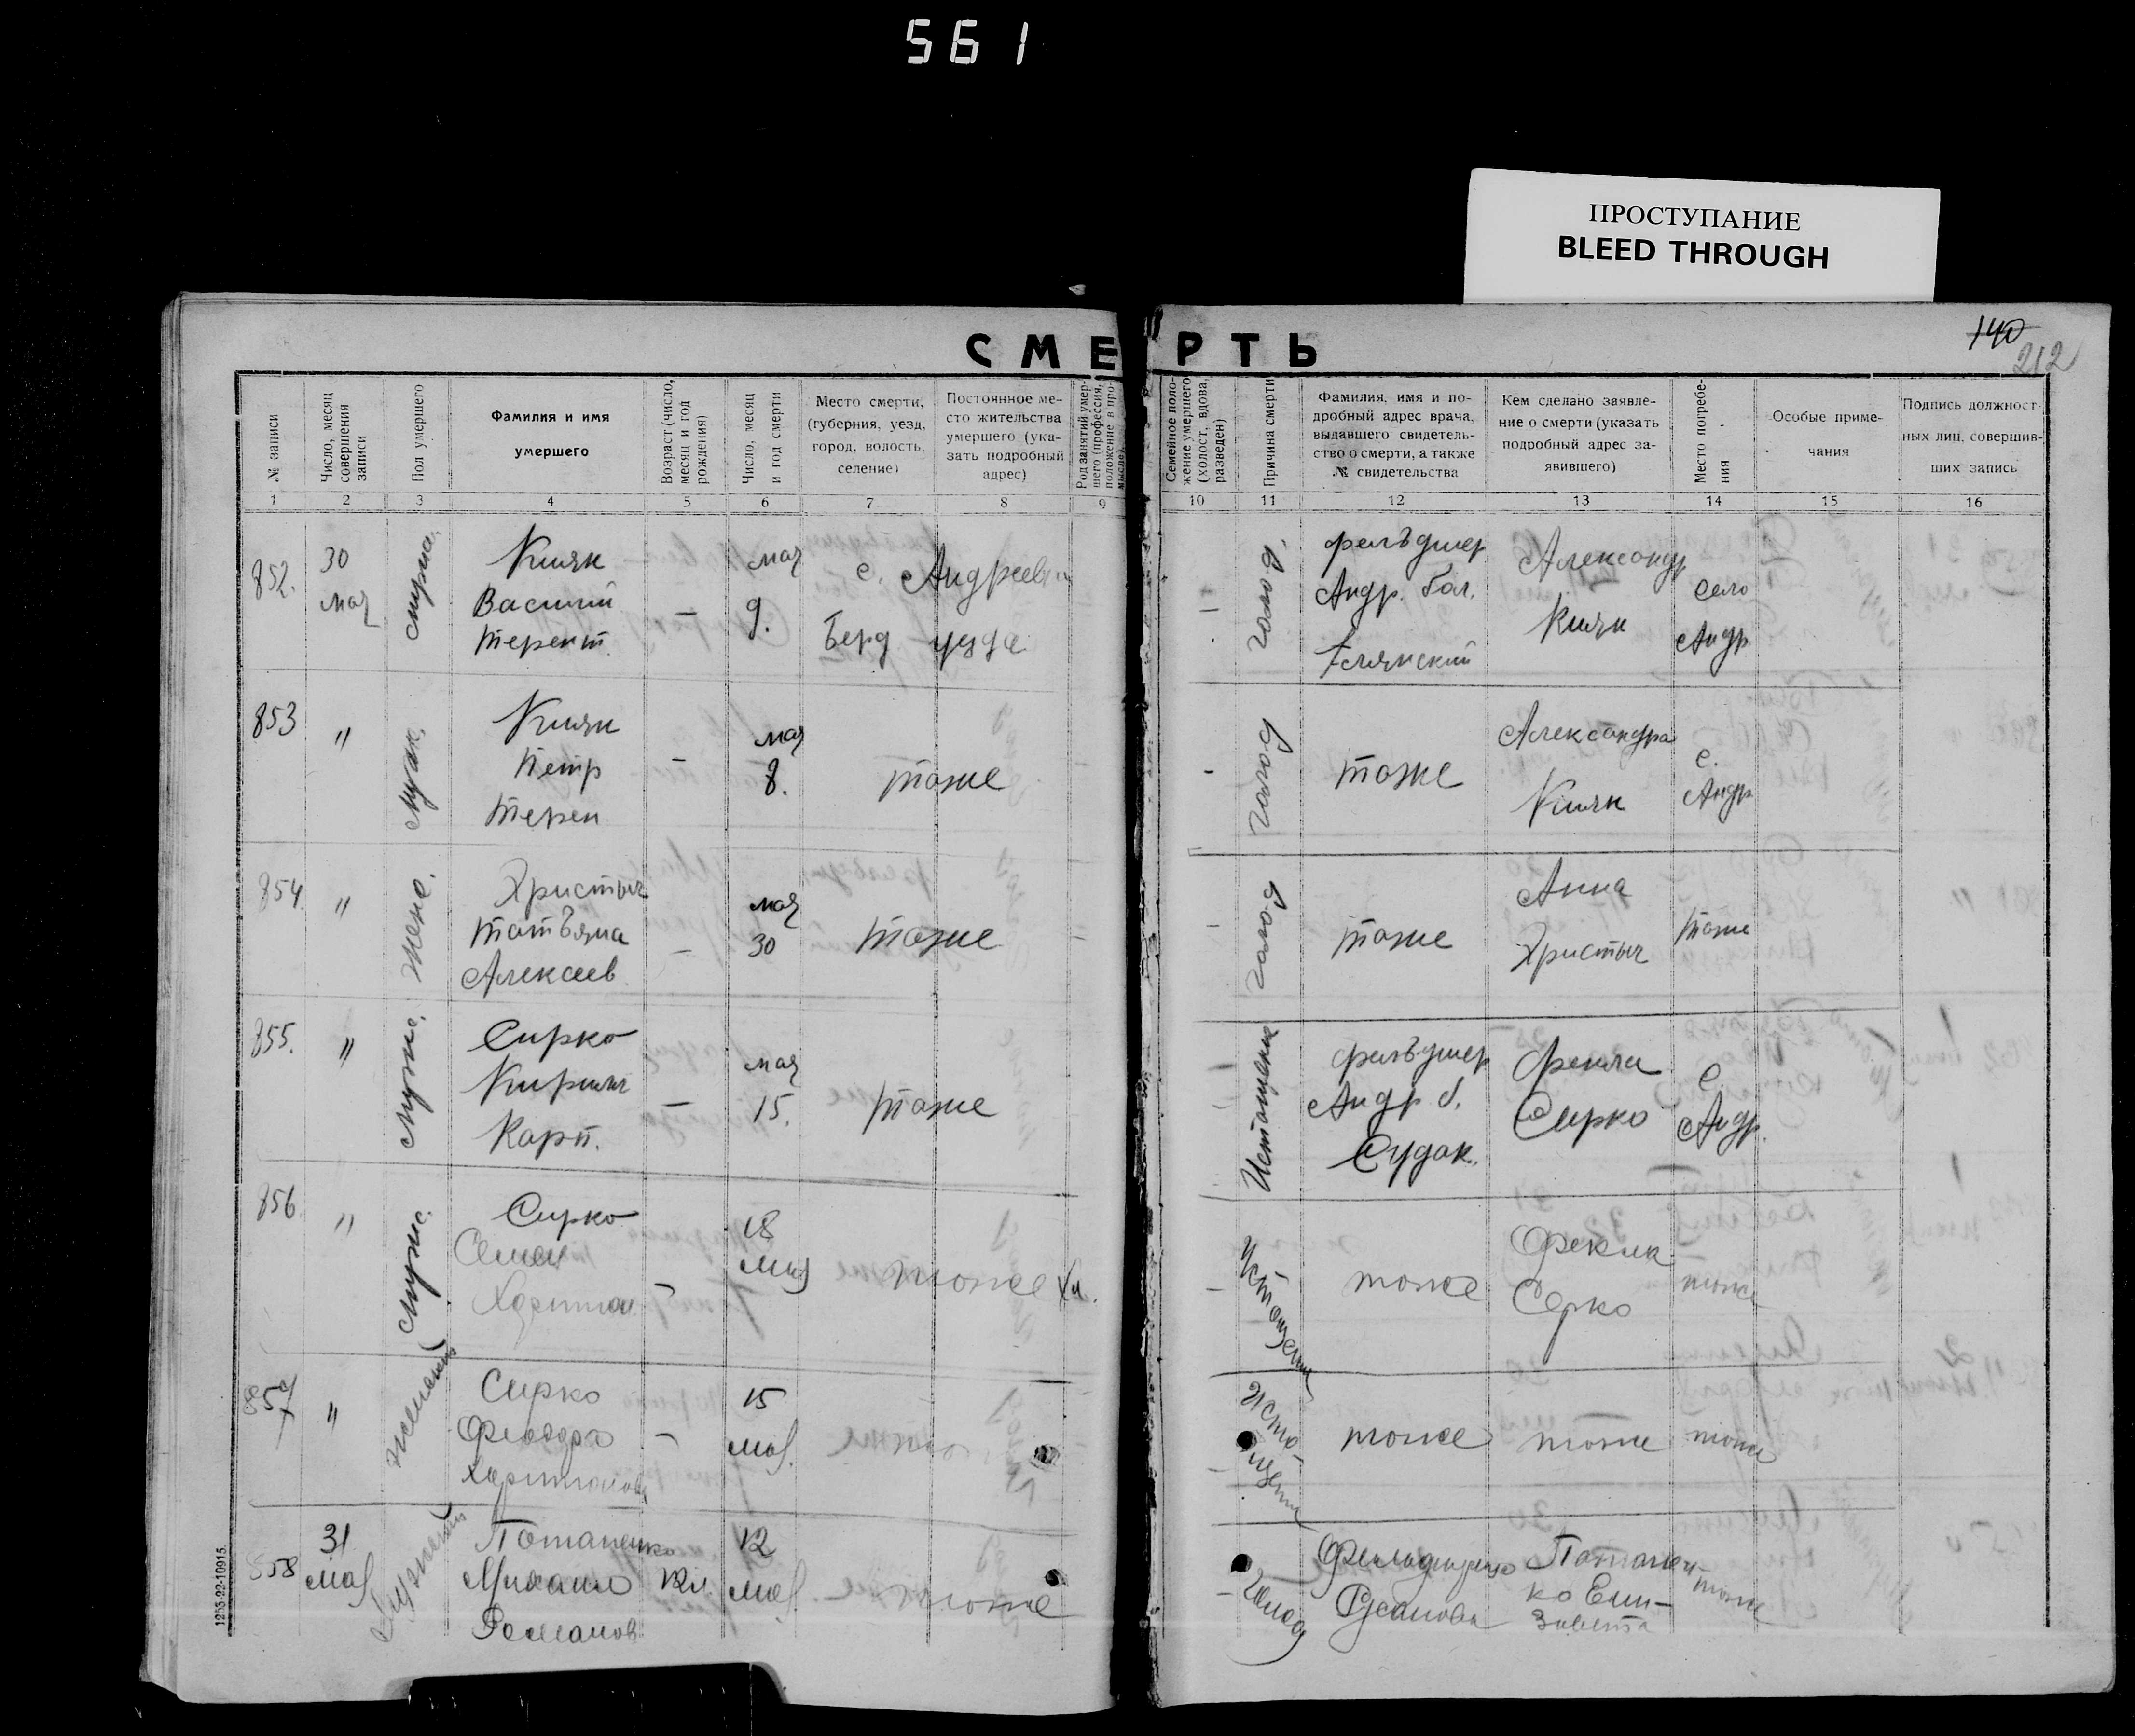 561
ПРОСТУПАНИЕ
BLEED THROUGH
140
212
СМЕРТЬ
№ записи
Число, месяц совершения записи
Пол умершего
Фамилия и имя умершего
Возраст (число, месяц и год рождения)
Число, месяц и год смерти
Место смерти, (губерния, уезд, город, волость, селение)
Постоянное место жительства умершего (указать подробный адрес)
Род занятий умершего (профессия, положение в промысле)
Семейное положение умершего (холост, вдова, разведен)
Причина смерти
Фамилия, имя и подробный адрес врача, выдавшего свидетельство о смерти, а также № свидетельства
Кем сделано заявление о смерти (указать подробный адрес заявившего)
Место погребения
Особые примечания
Подпись должностных лиц, совершивших запись
1 2 3 4 5 6 7 8 9 10 11 12 13 14 15 16
852.
30
мая
Кияк
Василий
Терент.
—
мая
9.
с. Андреевка
Берд уезда
—
голод.
фельдшер
Андр. бол.
Александр
Кияк
село
Андр
853
"
Мужс.
Кияк
Петр
Терен
—
мая
8.
тоже
-
голод
тоже
Александра
Кияк
с.
Андр
854
"
Женс.
Христыч
Татьяна
Алексеев
—
мая
30
тоже
-
голод
тоже
Анна
Христыч
тоже
855.
"
Мужс.
Сирко
Кирилл
Карп.
—
мая
15.
тоже
—
Истощение
фельдшер
Андр б.
Судак.
Фекла
Сирко
с.
Андр.
856
"
Мужс.
Сирко
Семен
Харитон
—
18
мая
тоже
—
Истощение
тоже
Фекла
Серко
тоже
857
"
женский
Сирко
Феодора
Харитонов
—
15
мая.
тоже
—
Истощение
тоже
тоже
тоже
858
31
мая
Мужской
Потапенко
Михаил
Романов
12
мая.
тоже
—
голод
Русанова
Потапен
ко Ели-
завета
тоже
1253-22-10915.